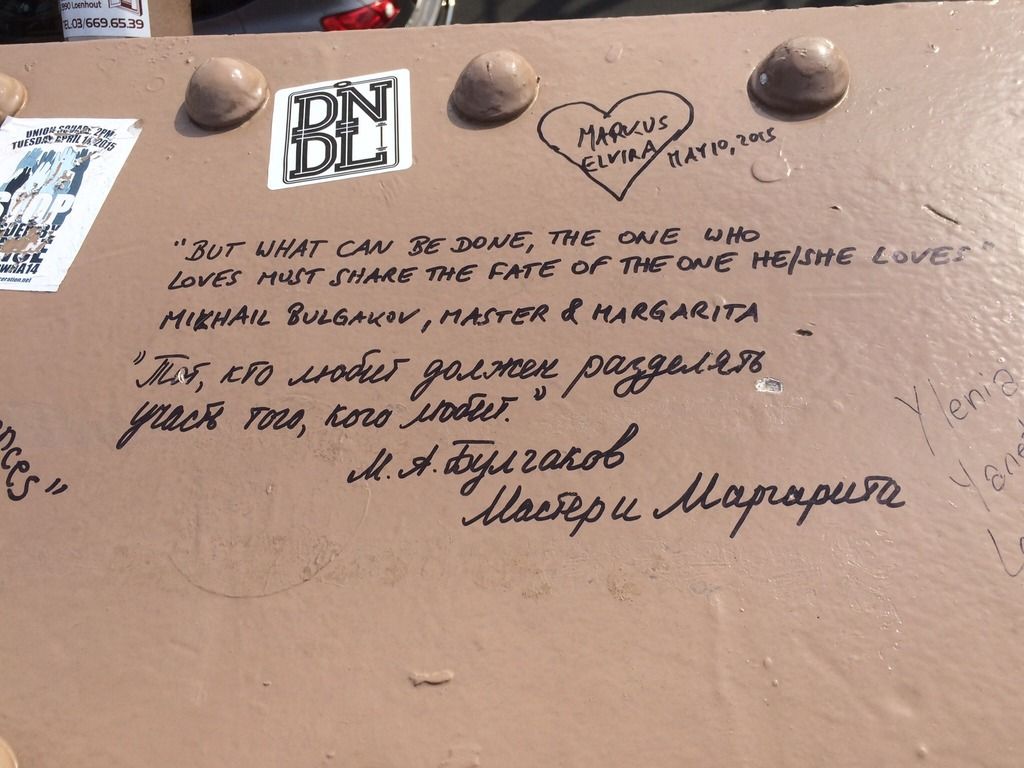 890 Loenhout
TEL.03/669.65.39
UNION SQUARE 2PM
TUESDAY APRIL 14 2015
DN
DL
MARKUS
ELVIRA
MAY 10, 2015
"BUT WHAT CAN BE DONE, THE ONE WHO
LOVES MUST SHARE THE FATE OF THE ONE HE/SHE LOVES"
MIKHAIL BULGAKOV, MASTER & MARGARITA
"Тот, кто любит должен разделять
участь того, кого любит."
М.А.Булгаков
Мастер и Маргарита
nces"
Ylenia